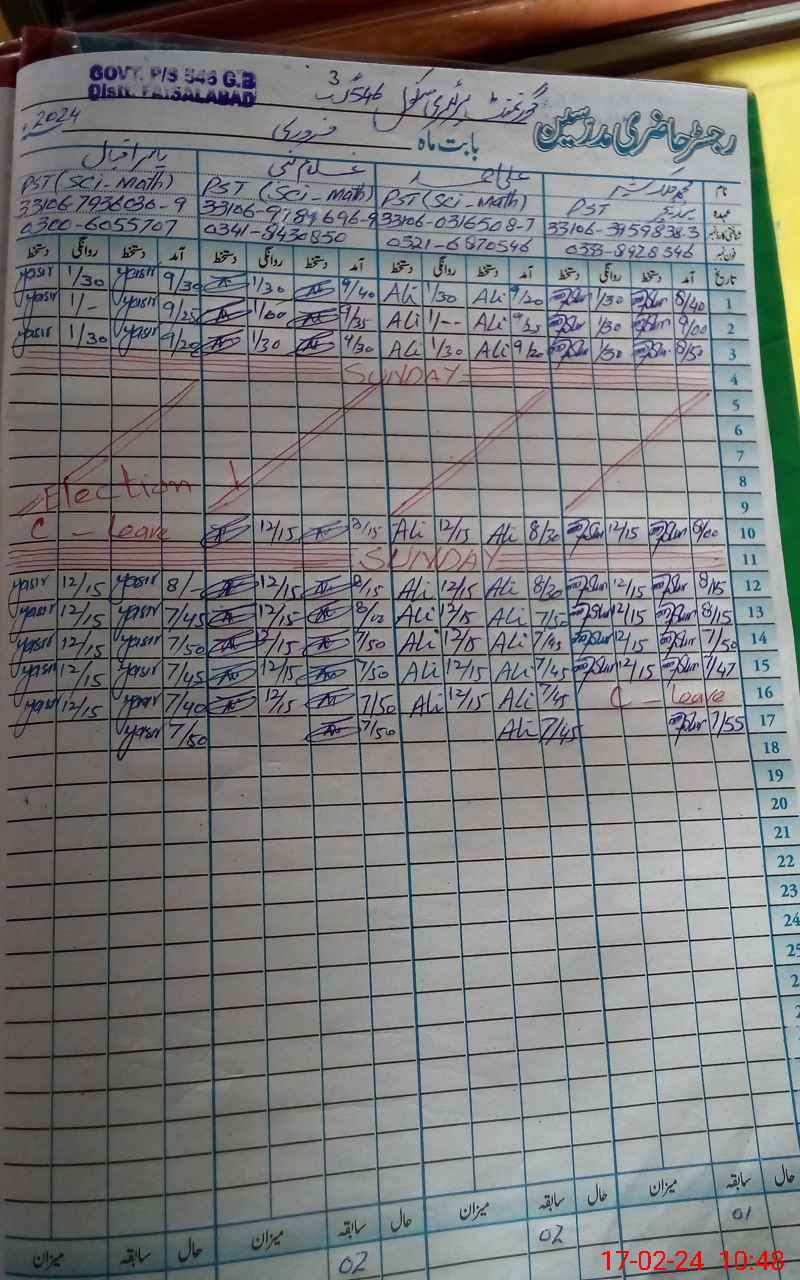 GOVT. P/S 546 G.B
Distt. FAISALABAD
گورنمنٹ پرائمری سکول 546 گ ب
رجسٹر حاضری مدرسین
بابت ماہ فروری 2024
نام محمد علی احمد غلام نبی یاسر اقبال
عہدہ PST PST (Sci-Math) PST (Sci-Math) PST (Sci-Math)
33106-3959838-3 33106-0316508-7 33106-9789696-9 33106-7936036-9
0321-6870546 0341-8430850 0300-6055707
تاریخ آمد دستخط روانگی دستخط آمد دستخط روانگی دستخط آمد دستخط روانگی دستخط آمد دستخط روانگی دستخط
1 8/40 1/30 9/20 Ali 1/30 Ali 9/40 1/30 9/30 yasir 1/30 yasir
2 9/00 1/30 9/25 Ali 1/-- Ali 9/35 1/00 9/25 yasir 1/- yasir
3 8/50 1/30 9/20 Ali 1/30 Ali 9/30 1/30 9/20 yasir 1/30 yasir
4 SUNDAY
5
6
7
8
Election
9
10 12/15 8/30 Ali 12/15 Ali 8/15 12/15 C - Leave
11 SUNDAY
12 8/15 12/15 8/20 Ali 12/15 Ali 8/15 12/15 8/- yasir 12/15 yasir
13 8/15 12/15 7/50 Ali 12/15 Ali 12/15 7/45 yasir 12/15 yasir
14 7/50 12/15 7/45 Ali 12/15 Ali 7/50 12/15 7/50 yasir 12/15 yasir
15 7/47 12/15 7/45 Ali 12/15 Ali 7/50 12/15 7/45 yasir 12/15 yasir
16 C - Leave 7/45 Ali 12/15 Ali 7/50 12/15 7/40 yasir 12/15 yasir
17 7/55 7/45 Ali 7/50 7/50 yasir
18
19
20
21
22
23
24
حال سابقہ میزان حال سابقہ میزان حال سابقہ میزان حال سابقہ میزان
01 02 02
17-02-24 10:48